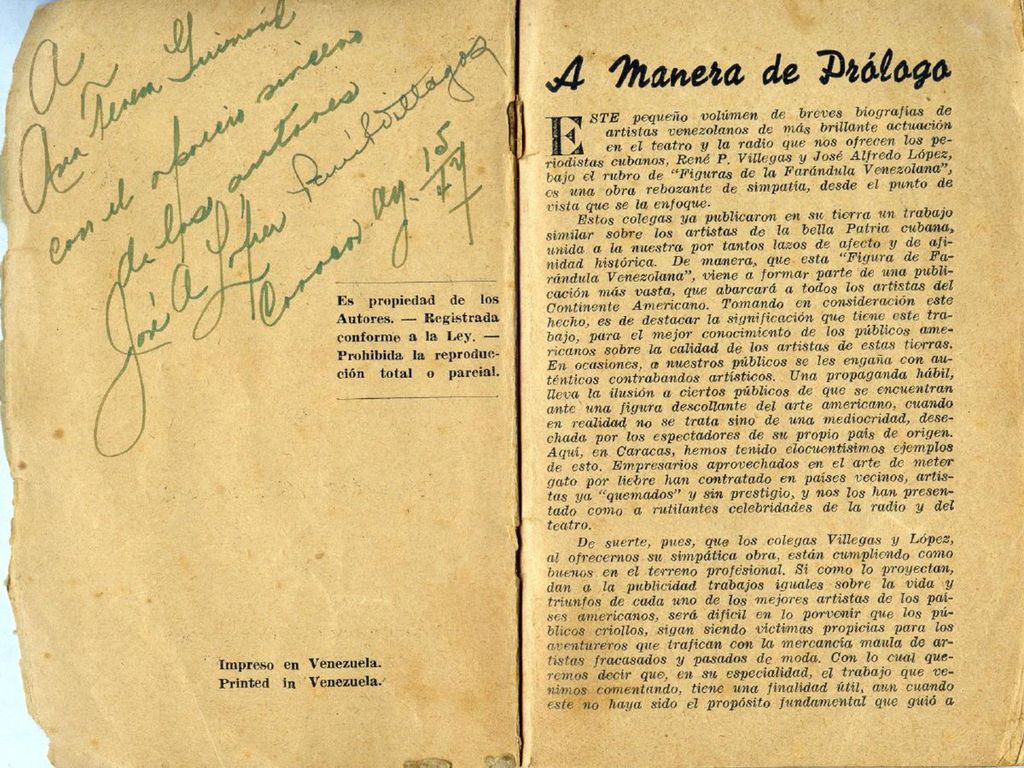 A
Ana Teresa Guinand
con el aprecio sincero
de los autores
José A López
René P Villegas
Caracas ag. 15/47
Es propiedad de los
Autores. — Registrada
conforme a la Ley. —
Prohibida la reproduc-
ción total o parcial.
Impreso en Venezuela.
Printed in Venezuela.
A Manera de Prólogo
ESTE pequeño volúmen de breves biografías de
artistas venezolanos de más brillante actuación
en el teatro y la radio que nos ofrecen los pe-
riodistas cubanos, René P. Villegas y José Alfredo López,
bajo el rubro de "Figuras de la Farándula Venezolana",
es una obra rebozante de simpatía, desde el punto de
vista que se la enfoque.
Estos colegas ya publicaron en su tierra un trabajo
similar sobre los artistas de la bella Patria cubana,
unida a la nuestra por tantos lazos de afecto y de afi-
nidad histórica. De manera, que esta "Figura de Fa-
rándula Venezolana", viene a formar parte de una publi-
cación más vasta, que abarcará a todos los artistas del
Continente Americano. Tomando en consideración este
hecho, es de destacar la significación que tiene este tra-
bajo, para el mejor conocimiento de los públicos ame-
ricanos sobre la calidad de los artistas de estas tierras.
En ocasiones, a nuestros públicos se les engaña con au-
ténticos contrabandos artísticos. Una propaganda hábil,
lleva la ilusión a ciertos públicos de que se encuentran
ante una figura descollante del arte americano, cuando
en realidad no se trata sino de una mediocridad, dese-
chada por los espectadores de su propio país de origen.
Aquí, en Caracas, hemos tenido elocuentísimos ejemplos
de esto. Empresarios aprovechados en el arte de meter
gato por liebre han contratado en países vecinos, artis-
tas ya "quemados" y sin prestigio, y nos los han presen-
tado como a rutilantes celebridades de la radio y del
teatro.
De suerte, pues, que los colegas Villegas y López,
al ofrecernos su simpática obra, están cumpliendo como
buenos en el terreno profesional. Si como lo proyectan,
dan a la publicidad trabajos iguales sobre la vida y
triunfos de cada uno de los mejores artistas de los paí-
ses americanos, será difícil en lo porvenir que los pú-
blicos criollos, sigan siendo víctimas propicias para los
aventureros que trafican con la mercancía maula de ar-
tistas fracasados y pasados de moda. Con lo cual que-
remos decir que, en su especialidad, el trabajo que ve-
nimos comentando, tiene una finalidad útil, aun cuando
este no haya sido el propósito fundamental que guió a